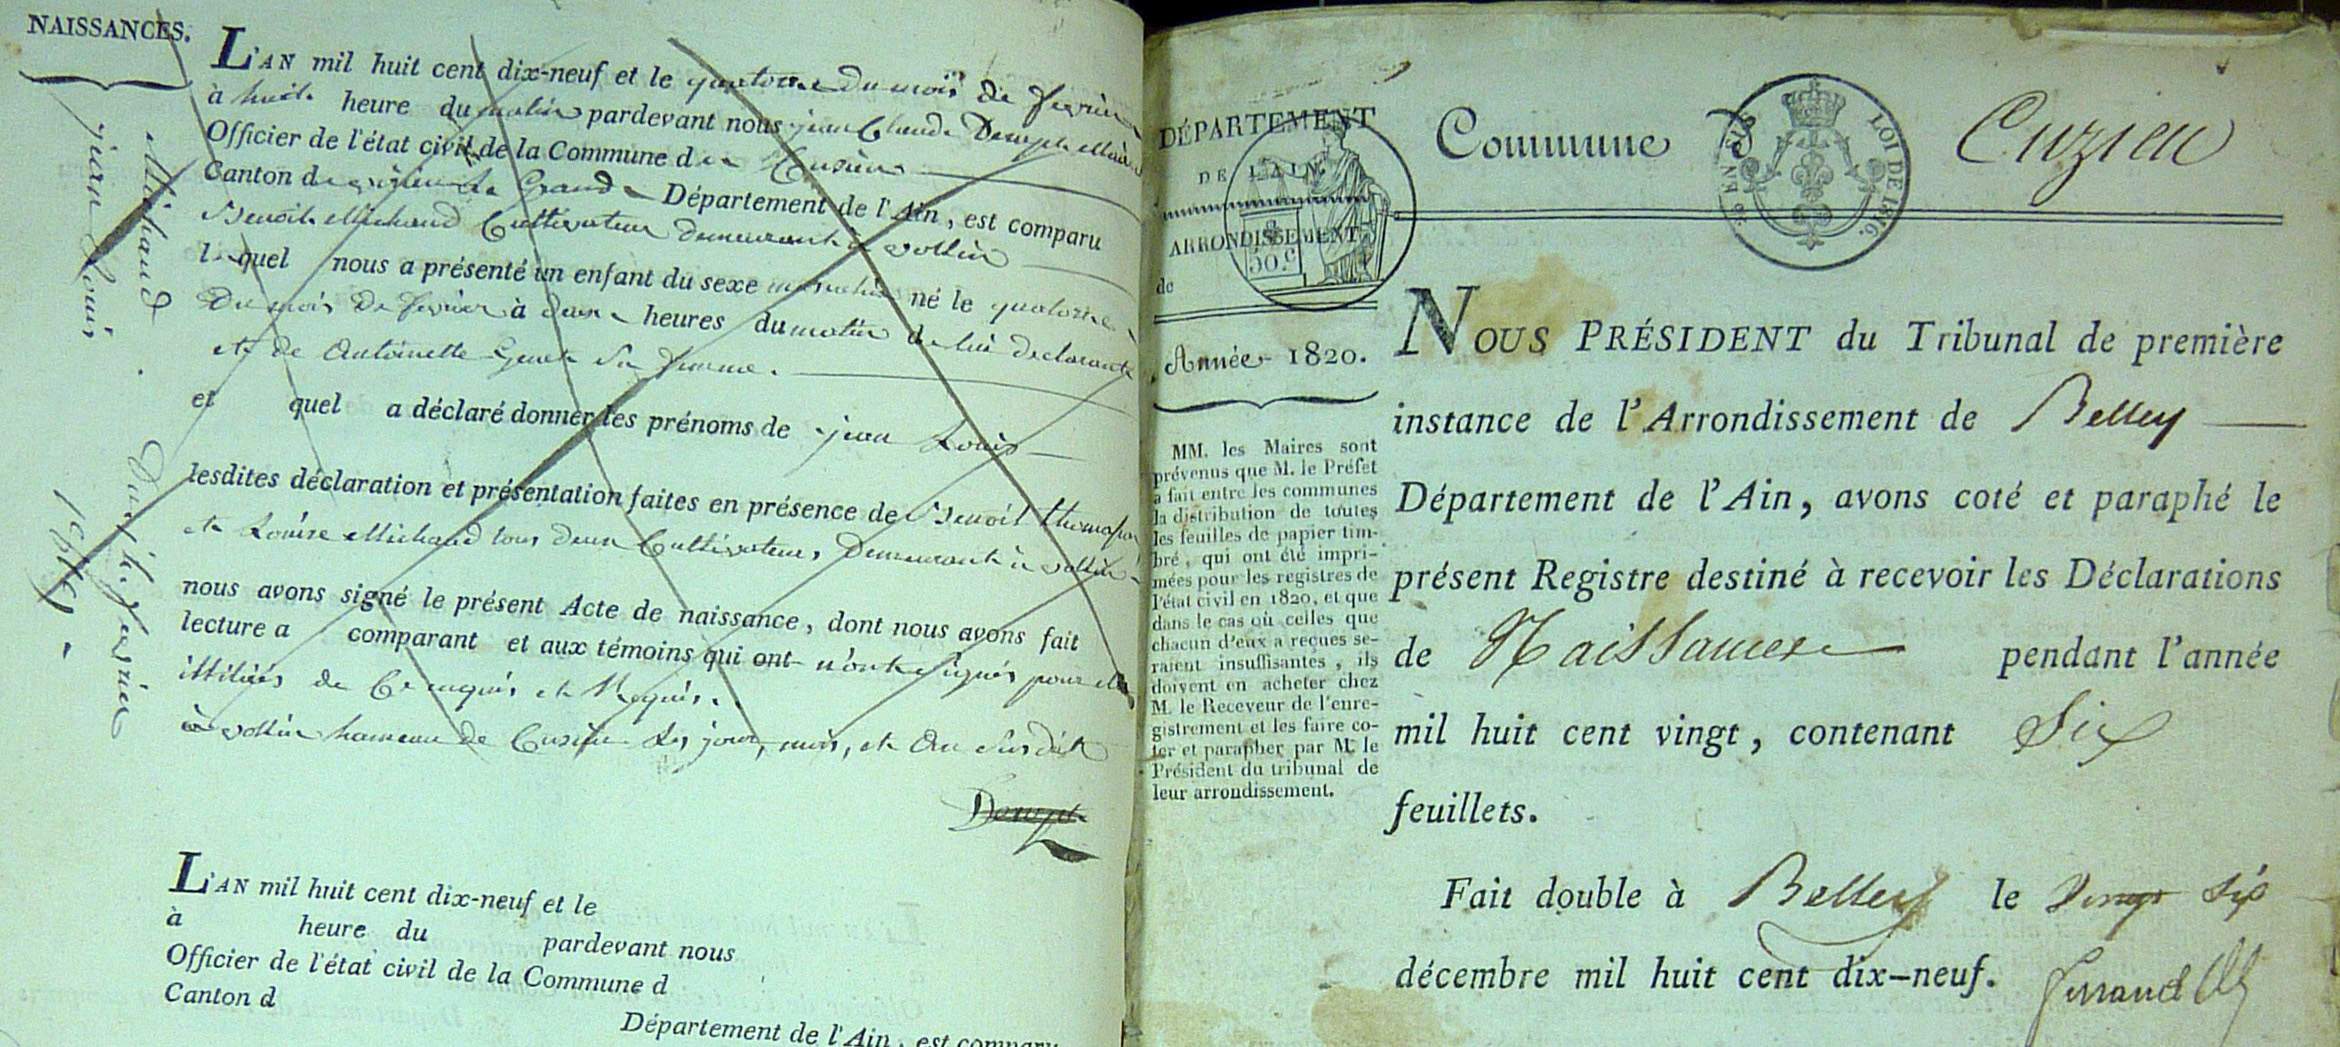 NAISSANCES.
Michaud
jean Louis
Du 14 fevrier
1819.
L'AN mil huit cent dix-neuf et le quatorze du mois de fevrier
à huit heure du matin pardevant nous jean Claude
Officier de l'état civil de la Commune de Cusieu
Canton de virieu le Grand Département de l'Ain, est comparu
Benoit Michaud Cultivateur demeurant à vollin
l quel nous a présenté un enfant du sexe masculin né le quatorze
du mois de fevrier à deux heures du matin de lui declarant
et de Antoinette sa femme.
et quel a déclaré donner les prénoms de jean Louis
lesdites déclaration et présentation faites en présence de Benoit
et Louise Michaud tous deux Cultivateurs demeurant à vollin
nous avons signé le présent Acte de naissance, dont nous avons fait
lecture a comparant et aux témoins qui ont n'ont signés pour etre
illitérés de ce enquis et Requis.
à vollin hameau de Cusieu les jour, mois, et an susdit
L'AN mil huit cent dix-neuf et le
à heure du pardevant nous
Officier de l'état civil de la Commune d
Canton d
Département de l'Ain, est comparu
DÉPARTEMENT
DE L'AIN.
ARRONDISSEMENT
de
50 C.
Année 1820.
MM. les Maires sont
prévenus que M. le Préfet
a fait entre les communes
la distribution de toutes
les feuilles de papier tim-
bré, qui ont été impri-
mées pour les registres de
l'état civil en 1820, et que
dans le cas où celles que
chacun d'eux a reçues se-
raient insuffisantes, ils
doivent en acheter chez
M. le Receveur de l'enre-
gistrement et les faire co-
ter et parapher par M. le
Président du tribunal de
leur arrondissement.
Commune D Cuzieu
LOI DE 1816.
NOUS PRÉSIDENT du Tribunal de première
instance de l'Arrondissement de Belley
Département de l'Ain, avons coté et paraphé le
présent Registre destiné à recevoir les Déclarations
de Naissances pendant l'année
mil huit cent vingt, contenant Six
feuillets.
Fait double à Belley le vingt six
décembre mil huit cent dix-neuf.